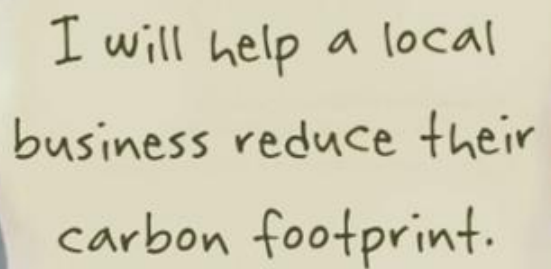 I will help a local
business reduce their
carbon footprint.